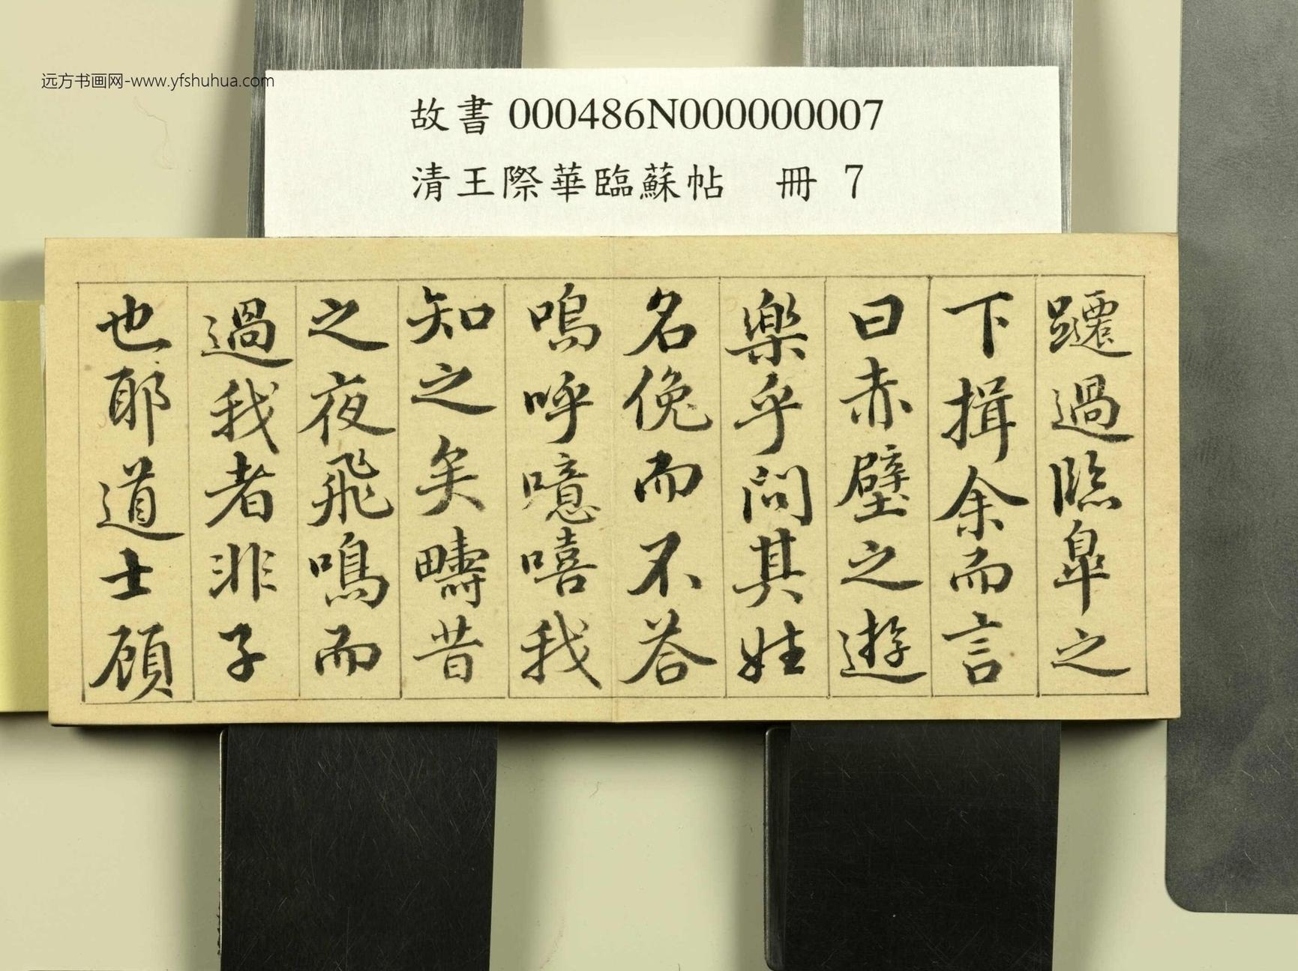 远方书画网-www.yfshuhua.com
故書000486N000000007
清王際華臨蘇帖 冊 7
躚過臨臯之
下揖余而言
曰赤壁之遊
樂乎問其姓
名俛而不答
嗚呼噫嘻我
知之矣疇昔
之夜飛鳴而
過我者非子
也耶道士顧